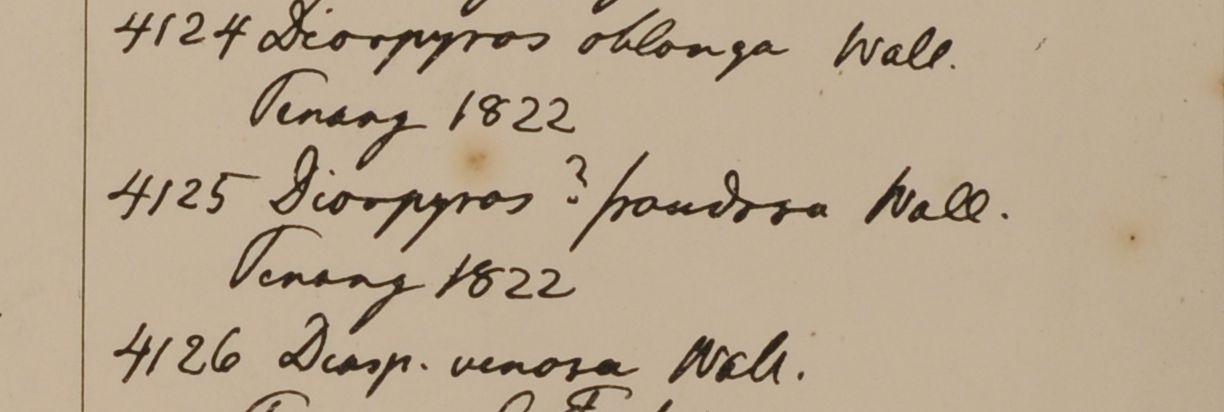 4124 Diospyros oblonga Wall.
Penang 1822
4125 Diospyros ? frondosa Wall.
Penang 1822
4126 Diosp. venosa Wall.